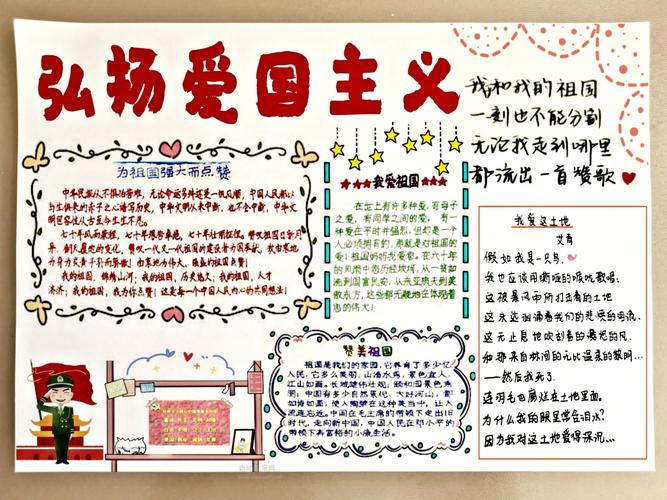 弘扬爱国主义
我和我的祖国
一刻也不能分割
无论我走到哪里
都流出一首赞歌
为祖国强大而点赞
中华民族从不惧怕苦难,无论命运多舛还是一帆风顺,中国人民都以
与生俱来的赤子之心谱写历史,中华文明从未中断,也不会中断,中华文
明包容状古去至今生生不息。
七十年风雨兼程,七十年艰苦卓越,七十年壮丽征程。
我的祖国,锦绣山河;我的祖国,历史悠久;我的祖国,人才
济济;我的祖国,我为你点赞!这是每一个中国人民内心的共同想法!
我爱祖国
在世上有许多种爱,有母子
之爱,有同学之间的爱,有一
种爱在平时并强烈,但却是一个
人必须拥有的,那就是对祖国的
爱!祖国妈妈我爱您。在六十年
的风雨中您历经坎坷,从一贫如
洗到国富民安,从东亚病夫到笑
傲东方,这些都无疑地在体现着
您的伟大!
赞美祖国
祖国是我们的家园,它养育了多少亿
人民,它多么美丽,山清水秀,景色宜人,
江山如画,长城雄伟壮观;颐和园景色秀
丽,中国有多少自然景观,大好河山,都
如诗如画,使人陶醉在这种美当中,让人
流连忘返。中国在毛主席的带领下走出旧
时代,走向新中国,中国人民在邓小平的
带领下奔富裕的小康生活。
我爱这土地
艾青
假如我是一只鸟,
我也应该用嘶哑的喉咙歌唱:
这被暴风雨所打击着的土地
这永远汹涌着我们的悲愤的河流,
这无止息地吹刮着的激怒的风,
和那来自林间的无比温柔的黎明……
——然后我死了,
连羽毛也腐烂在土地里面。
为什么我的眼里常含泪水?
因为我对这土地爱得深沉…